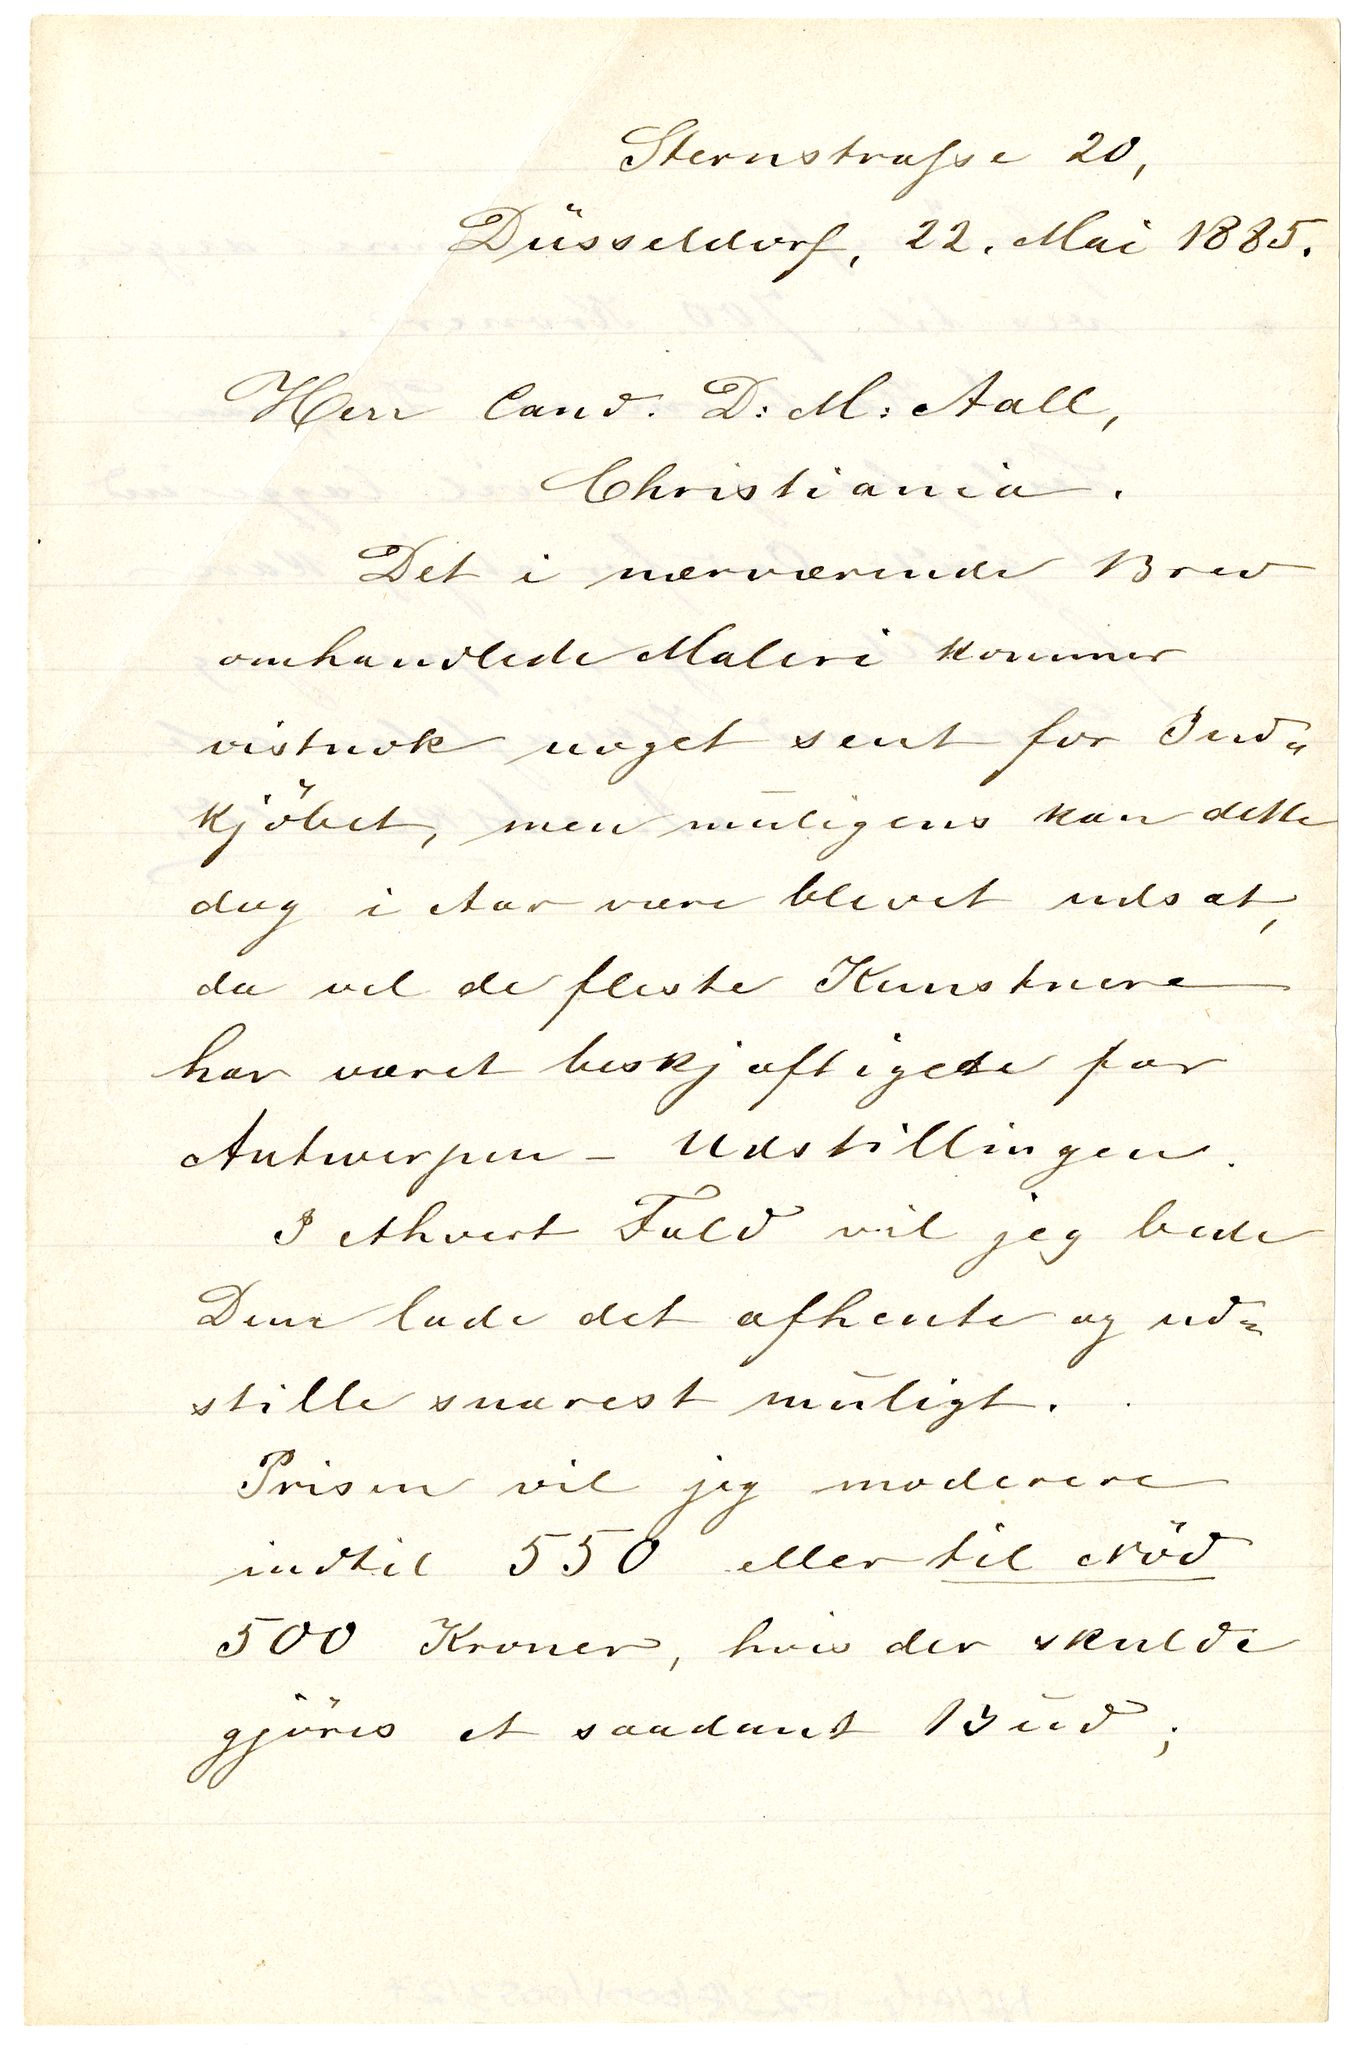 Sternstraſse 20,
Düsseldorf, 22. Mai 1885.
Herr Cand. D: M: Aall,
Christiania.
Det i nærværende Brev
omhandlede Maleri kommer
vistnok noget sent for Ind=
kjöbet, men muligens kan dette
dog i Aar være blevet udsat,
da vel de fleste Kunstnere
har været beskjæftigede for
Antwerpen-Udstillingen.
I ethvert Fald vil jeg bede
Dem lade det afhente og ud=
stille snarest muligt.
Prisen vil jeg moderere
indtil 550 eller til Nöd
500 Kroner, hvis der skulde
gjöres et saadant Bud;